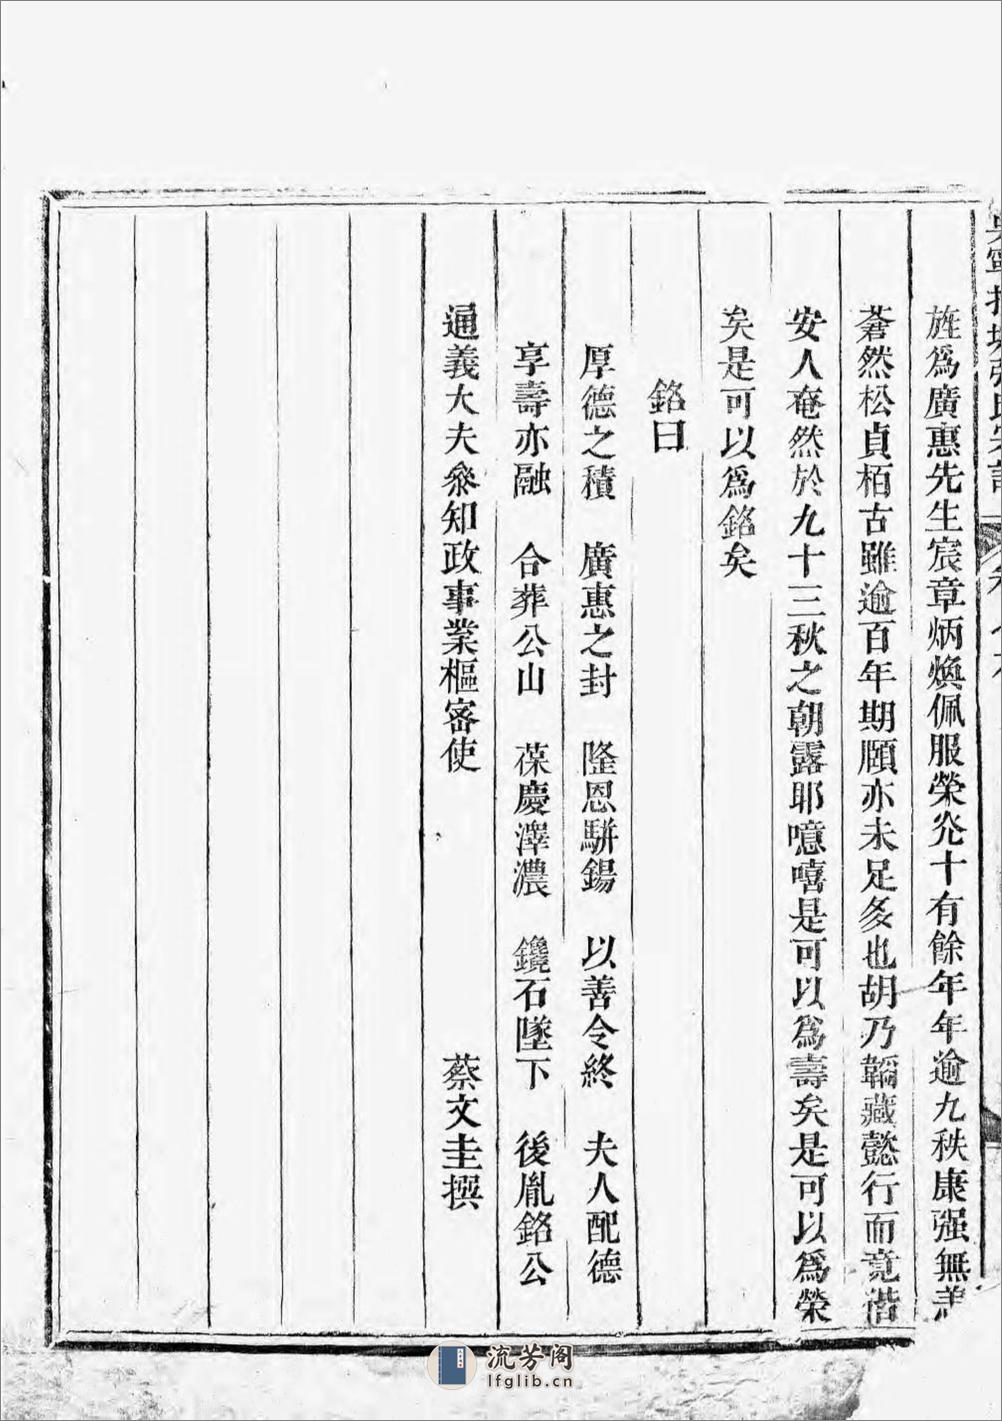 旌爲廣惠先生宸章炳煥佩服榮光十有餘年年逾九秩康强無恙
蒼然松貞栢古雖逾百年期頤亦未足多也胡乃韜藏懿行而竟偕
安人奄然於九十三秋之朝露耶噫嘻是可以爲壽矣是可以爲榮
矣是可以爲銘矣
銘曰
厚德之積 廣惠之封 隆恩騈錫 以善令終 夫人配德
享壽亦融 合葬公山 葆慶澤濃 鑱石墜下 後胤銘公
通義大夫叅知政事業樞密使 蔡文圭撰
流芳阁
lfglib.cn